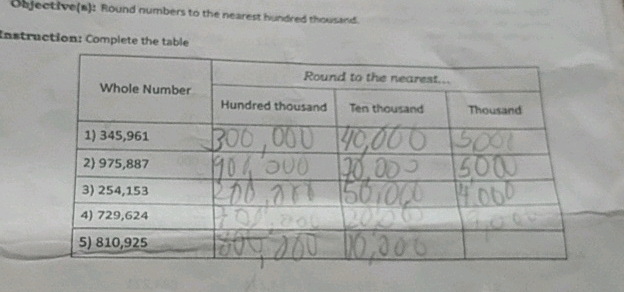 Objective(s): Round numbers to the nearest hundred thousand.
Instruction: Complete the table
Whole Number Round to the nearest...
Hundred thousand Ten thousand Thousand
1) 345,961 300,000 40,000
2) 975,887 900,000 70,000 5000
3) 254,153 200,000 50,000 4,000
4) 729,624 700,000 20,000 9,000
5) 810,925 800,000 10,000